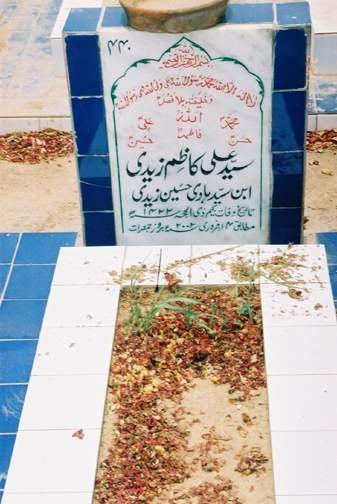 ۴۴۰
بسم اللہ الرحمن الرحیم
لا الہ الا اللہ محمد رسول اللہ علی ولی اللہ وصی رسول اللہ
و خلیفتہ بلا فصل
اللہ
محمد علی
فاطمہ
حسن حسین
سید علی کاظم زیدی
ابن سید ہادی حسین زیدی
تاریخ وفات یکم ذی الحجہ ۱۴۲۲ھ
مطابق ۱۴ فروری ۲۰۰۲ء بروز جمعرات